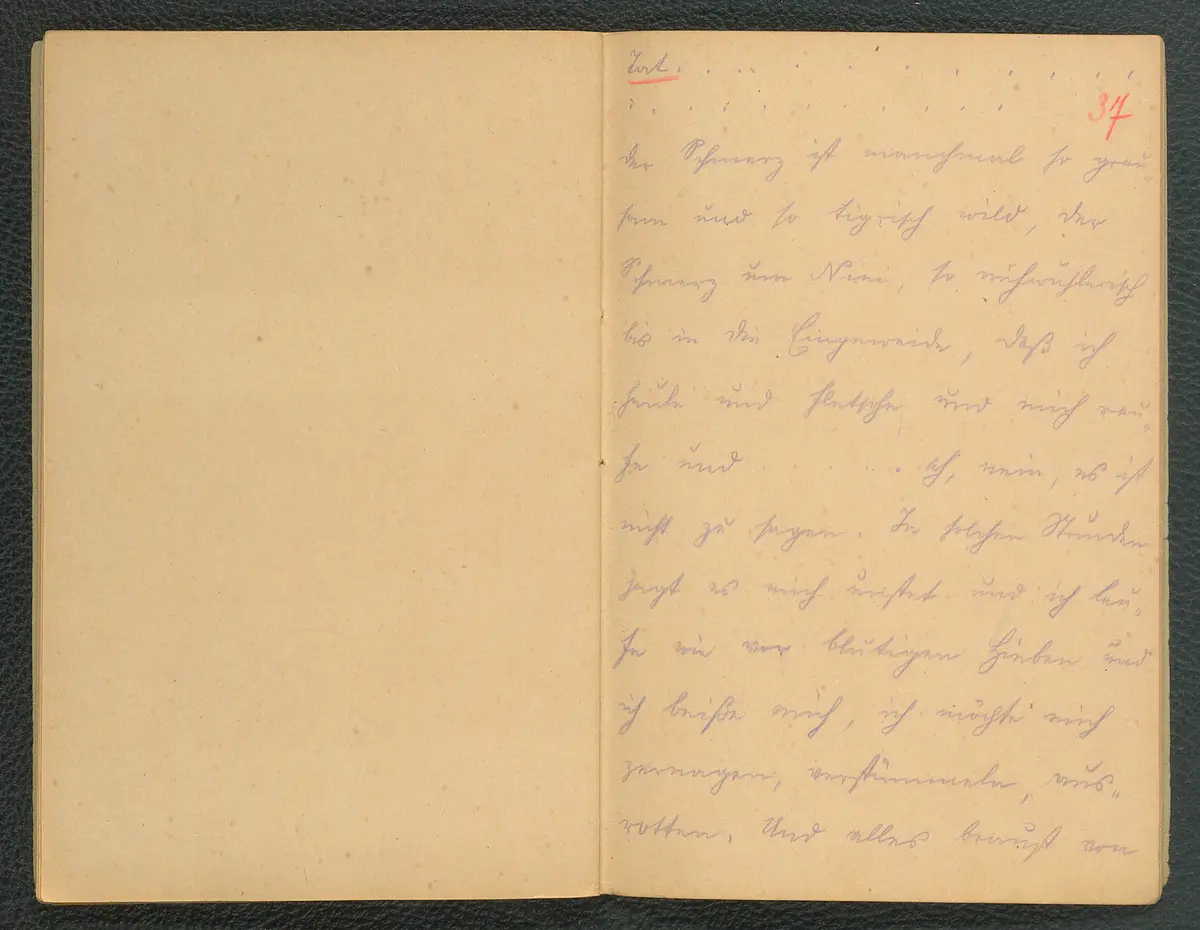 Tat. . . . . . . . . . . . .
. . . . . . . . . . .
37
der Schmerz ist manchmal so grau-
sam und so tigrisch wild, der
Schmerz um Nini, so
bis in die Eingeweide, daß ich
heule und fletsche und mich rau-
fe und . . . . . Ach, nein, es ist
nicht zu sagen. In solchen Stunden
jagt es mich unstet und ich lau-
fe wie vor blutigen Hieben und
ich beiße mich, ich möchte mich
zernagen, verstümmeln, aus-
rotten. Und alles braust von